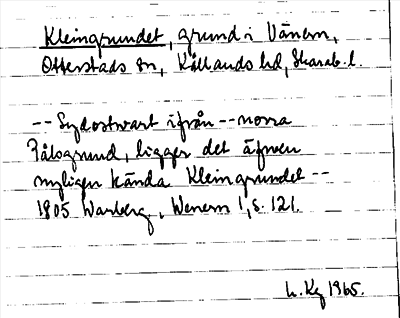 Kleingrundet, grund i Vänern,
Otterstads sn, Kållands hd, Skarab. l.
-- Sydostwart ifrån -- norra
Pålsgrund, ligger det äfwen
nyligen kända Kleingrundet --
1805 Warberg, Wenern 1, s. 121.
L. Kg 1965.